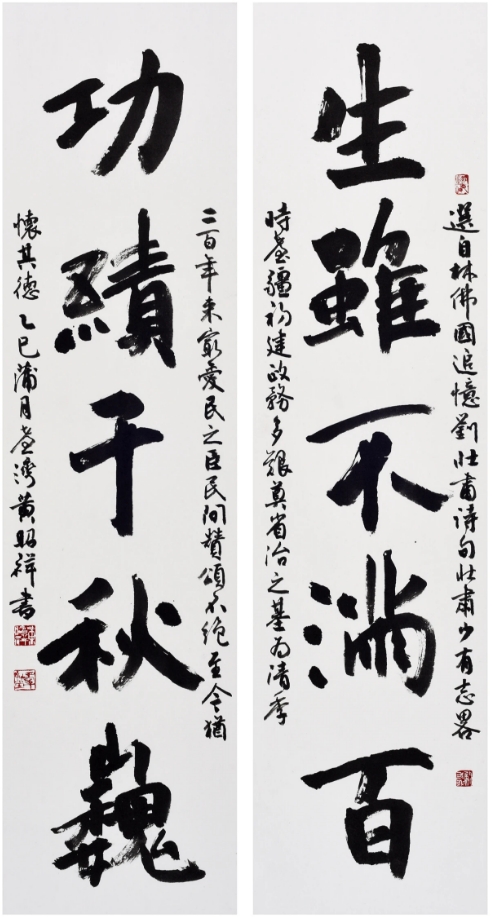 生雖不滿百
選自林佛國追憶劉壯肅詩句壯肅少有志畧
時臺疆初建政務多艱奠省治之基為清季
功績千秋巍
二百年來最愛民之臣民間贊頌不絕至今猶
懷其德乙巳蒲月臺灣黃昭祥書